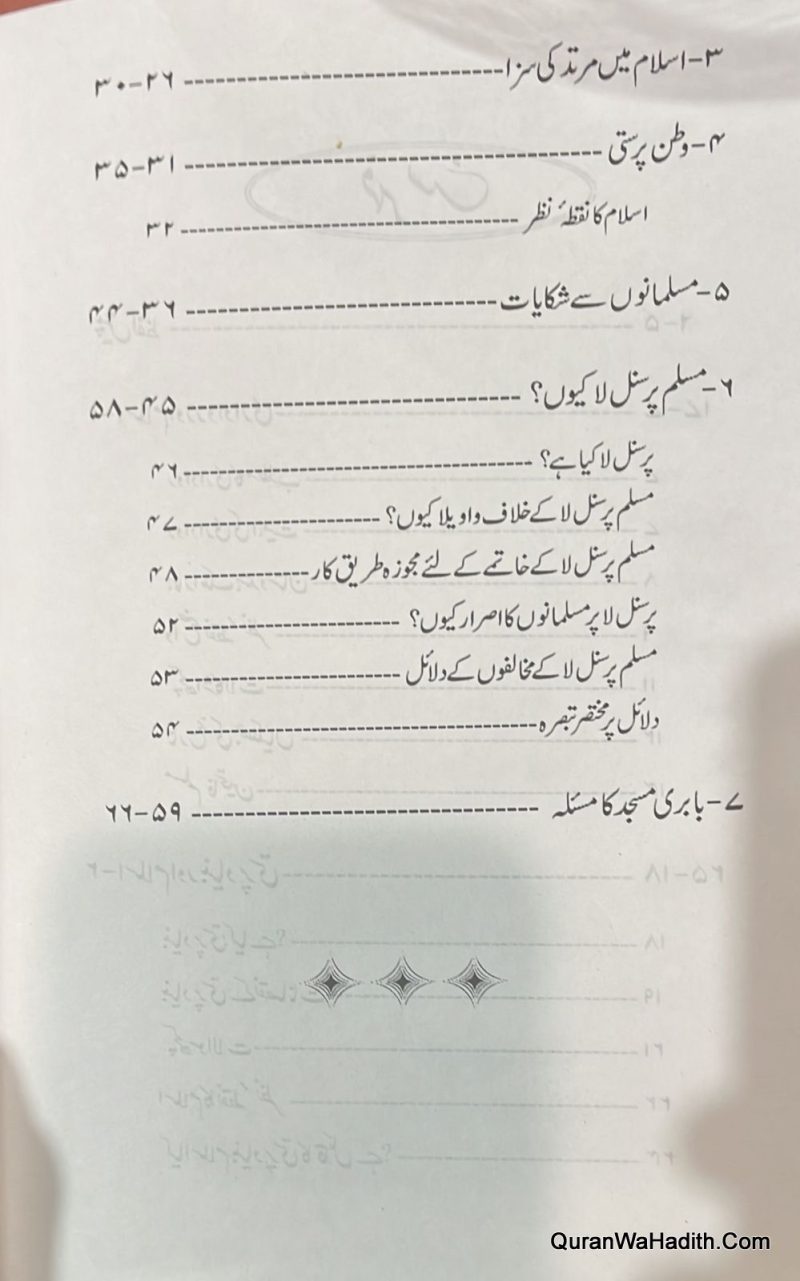 ۳-اسلام میں مرتد کی سزا ------------------------------ ۲۶-۳۰
۴-وطن پرستی ------------------------------ ۳۱-۳۵
اسلام کا نقطۂ نظر ------------------------------ ۳۲
۵-مسلمانوں سے شکایات ------------------------------ ۳۶-۴۴
۶-مسلم پرسنل لا کیوں؟ ------------------------------ ۴۵-۵۸
پرسنل لا کیا ہے؟ ------------------------------ ۴۶
مسلم پرسنل لا کے خلاف واویلا کیوں؟ -------------------- ۴۷
مسلم پرسنل لا کے خاتمے کے لئے مجوزہ طریق کار -------------- ۴۸
پرسنل لا پر مسلمانوں کا اصرار کیوں؟ ---------------------- ۵۲
مسلم پرسنل لا کے مخالفوں کے دلائل ---------------------- ۵۳
دلائل پر مختصر تبصرہ ------------------------------ ۵۴
۷-بابری مسجد کا مسئلہ ------------------------------ ۵۹-۶۶
QuranWaHadith.Com